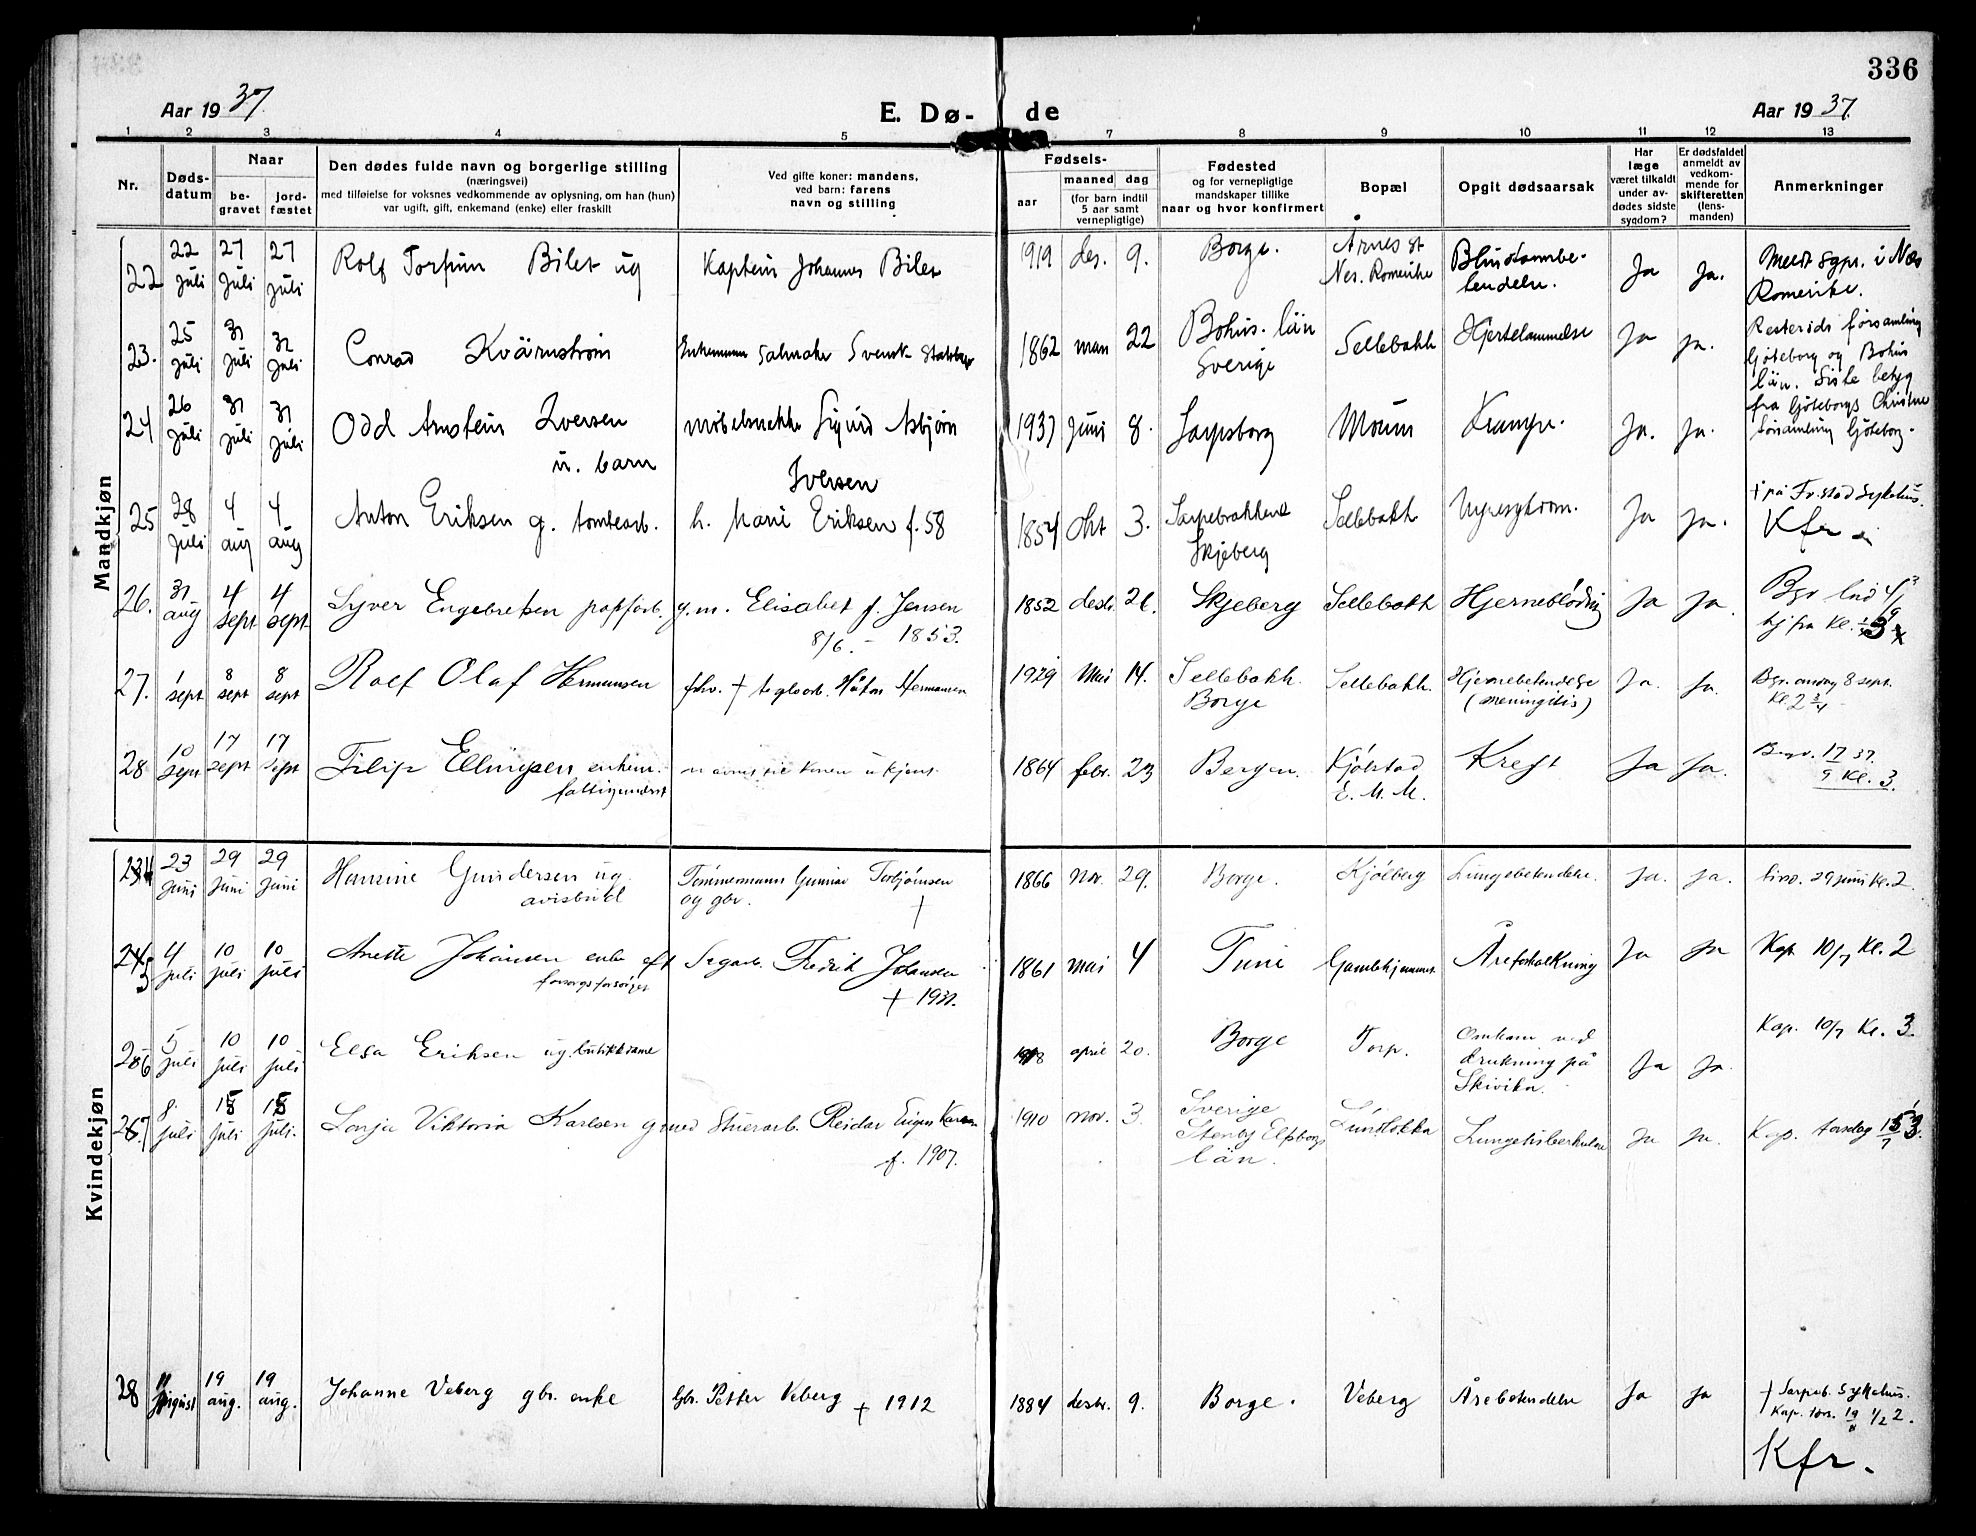 336
Aar 19 37.
E. Dø- de
Aar 19 37.
1 2 3 4 5 7 8 9 10 11 12 13
Nr.
Døds-
datum
Naar
be-
gravet
jord-
fæstet
Den dødes fulde navn og borgerlige stilling
(næringsvei)
med tilføielse for voksnes vedkommende av oplysning, om han (hun)
var ugift, gift, enkemand (enke) eller fraskilt
Ved gifte koner: mandens,
ved barn: farens
navn og stilling
Fødsels-
aar
maaned dag
(for barn indtil
5 aar samt
vernepligtige)
Fødested
og for vernepligtige
mandskaper tillike
naar og hvor konfirmert
Bopæl
Opgit dødsaarsak
Har
læge
været tilkaldt
under av-
dødes sidste
sygdom?
Er dødsfaldet
anmeldt av
vedkom-
mende for
skifteretten
(lens-
manden)
Anmerkninger
Mandkjøn
22 22 juli 27 juli 27 juli Rolf Torfinn Bilet ug Kaptein Johannes Bilet 1919 des. 9. Borge. Årnes st Nes. Romerike Blindtarmbe-
tendelse. Ja Ja. Meldt sgpr. i Nes
Romerike.
23. 25 juli 31 juli 31 juli Conrad Kvärnström Enkemann Svensk 1862 22 Bohus. län
Sverige Sellebakk Hjertelammelse Ja Ja. församling
Göteborg og Bohus
län. Siste betyg
fra Göteborgs Christine
församling Göteborg.
24 26 juli 31 juli 31 juli Odd Arnstein Iversen
u. barn møbelsnekker Sigurd Asbjørn
Iversen 1937 juni 8. Sarpsborg Moum Krampe. Ja. Ja.
25 28 juli 4 aug 4 aug Anton Eriksen g. tomtearb. h. Marie Eriksen f. 58 1854 okt 3. Sarpebakkene
Skjeberg Sellebakk Nyresykdom. Ja Ja. † på Fr.stad Sykehus.
Kfr
26. 31 aug 4 sept 4 sept. Syver Engebretsen papfarb. g.m. Elisabet f. Jensen
8/6. – 1853. 1852 desbr. 26. Skjeberg Sellebakk Hjerneblødning Ja Ja.
27. 1 sept 8 sept 8 sept Rolf Olaf Hermansen † teglarb. Håkon Hermansen 1929 Mai 14. Sellebakk.
Borge Sellebakk. Hjernebetendelse
(meningitis) Ja. Ja. Bgr. onsdag 8 sept.
Kl. 2 3/4
28 10 sept 17 sept 17 sept Filip Ellingsen enkem.
fattigunderst ukjent 1864 febr. 23 Bergen. Kjølstad
E. M. M. Kreft Ja Ja. Begr. 17/9 37.
Kl. 3.
Kvindekjøn
234 23 juni 29 juni 29 juni Hannine Gundersen ug.
avisbud Tømmermann Gunnar Torbjørnsen
og gbr. † 1866 nov. 29. Borge. Kjølberg Lungebetendelse. Ja. Ja. 29 juni kl. 2.
245 4 juli 10 juli 10 juli Anette Johansen enke eft
forsorgsforsørget Sagarb. Fredrik Johansen
† 1931. 1861 mai 4 Tune Gamlehjemmet Åreforkalkning Ja Ja Kap 10/7 Kl. 2
256 5 juli 10 juli 10 juli Elsa Eriksen ug. butikkdame 1918 april 20. Borge Torp. Omkom ved
drukning på
Skivika. Ja Ja. Kap. 10/7 Kl. 3.
267 8. juli 15 juli 15 juli. Sonja Viktoria Karlsen g med Stuerarb. Reidar Eugen Karlsen
f. 1907. 1910 nov. 3. Sverige
Elfsborgs
län. Lundløkka Lungetuberkulose Ja Ja. Kap. torsdag 15/7 3.
28 11 august 19 aug. 19 aug. Johanne Veberg gbr. enke Gbr. Petter Veberg † 1912 1884 desbr. 9. Borge. Veberg Årebetendelse Ja Ja † Sarpsb. Sykehus.
Kap. tors. 19/8 1/2 2.
Kfr.